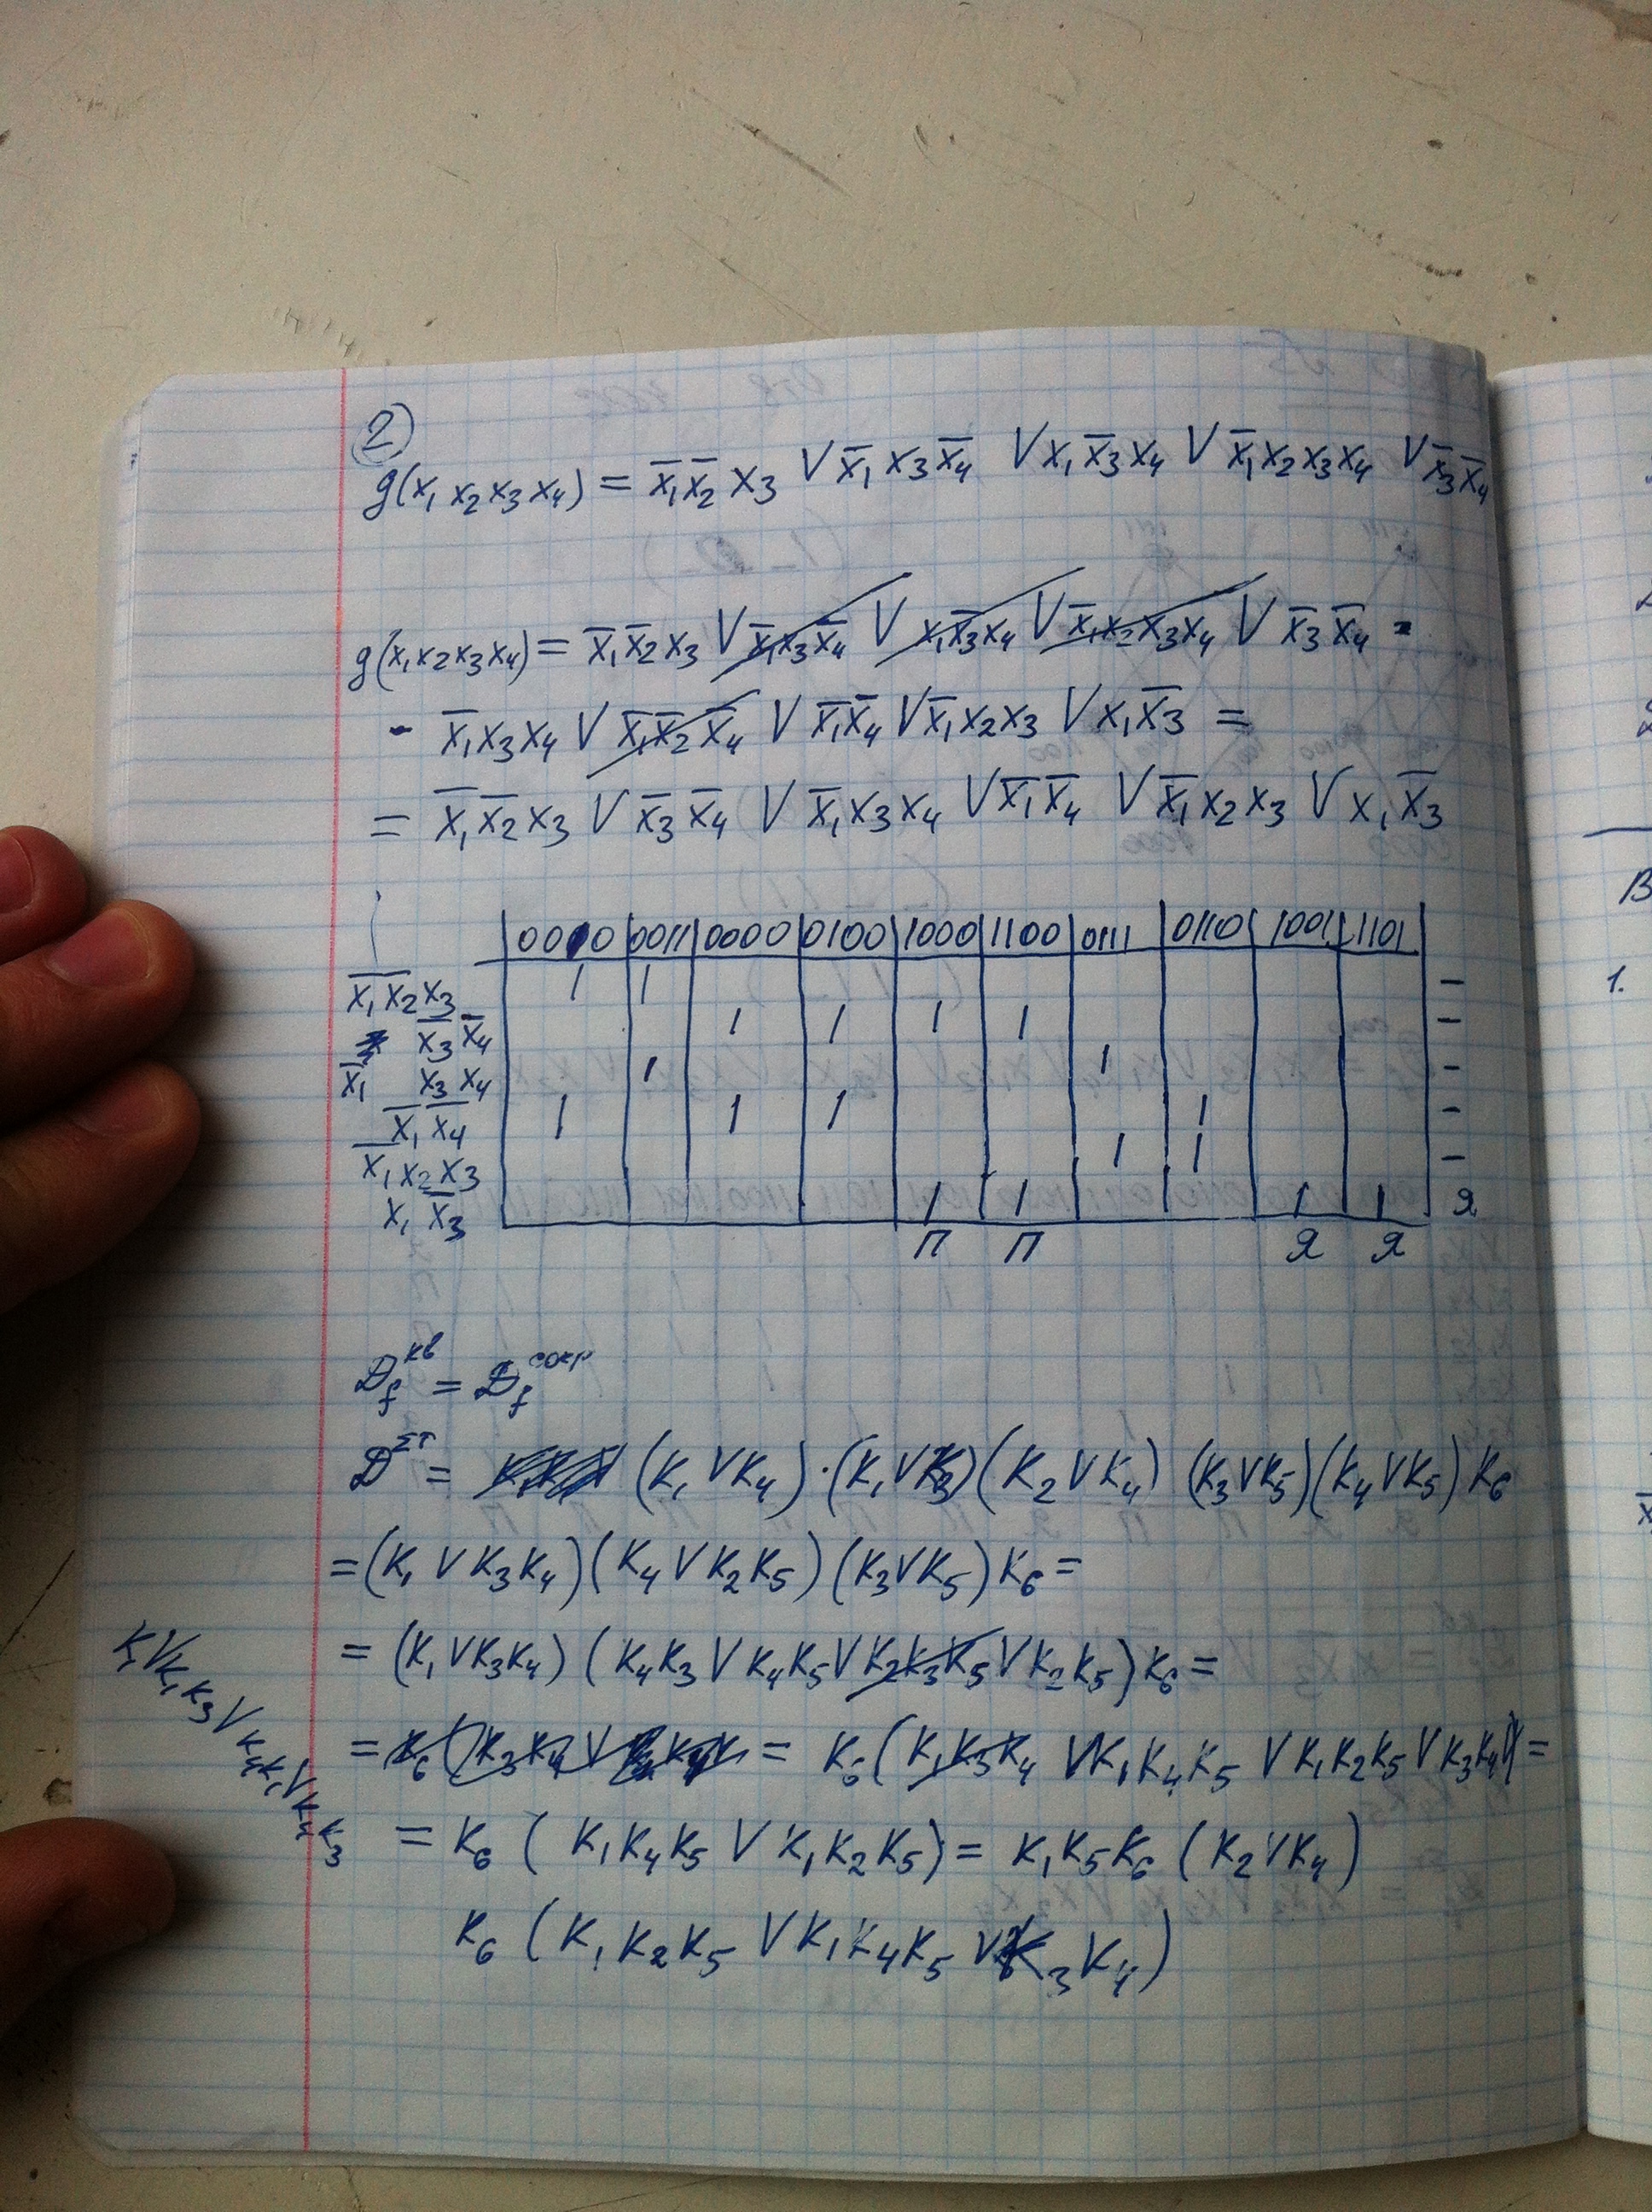 2)
g(x₁ x₂ x₃ x₄) = x̄₁x̄₂x₃ V x̄₁x₃x̄₄ V x₁x̄₃x₄ V x̄₁x₂x₃x₄ V x̄₃x̄₄
g(x₁x₂x₃x₄) = x̄₁x̄₂x₃ V x̄₁x₃x̄₄ V x₁x̄₃x₄ V x̄₁x₂x₃x₄ V x̄₃x̄₄ =
= x̄₁x₃x₄ V x̄₁x̄₂x̄₄ V x̄₁x̄₄ V x̄₁x₂x₃ V x₁x̄₃ =
= x̄₁x̄₂x₃ V x̄₃x̄₄ V x̄₁x₃x₄ V x̄₁x̄₄ V x̄₁x₂x₃ V x₁x̄₃
0010 | 0011 | 0000 | 0100 | 1000 | 1100 | 0111 | 0110 | 1001 | 1101
x̄₁x̄₂x₃ 1 1 –
x̄₃x̄₄ 1 1 1 1 –
x̄₁ x₃x₄ 1 1 –
x̄₁x̄₄ 1 1 1 1 –
x̄₁x₂x₃ 1 1 –
x₁x̄₃ 1 1 1 1 Я
П П Я Я
D_f^кв = D_f^сокр
D^ΣТ = (K₁ V K₄)·(K₁ V K₃)(K₂ V K₄)(K₃ V K₅)(K₄ V K₅)K₆
= (K₁ V K₃K₄)(K₄ V K₂K₅)(K₃ V K₅)K₆ =
= (K₁ V K₃K₄)(K₄K₃ V K₄K₅ V K₂K₃K₅ V K₂K₅)K₆ =
K₁ V K₁K₃ V K₄K₁ V K₄K₃
= = K₆(K₁K₃K₄ V K₁K₄K₅ V K₁K₂K₅ V K₃K₄) =
= K₆(K₁K₄K₅ V K₁K₂K₅) = K₁K₅K₆(K₂ V K₄)
K₆(K₁K₂K₅ V K₁K₄K₅ V K₃K₄)